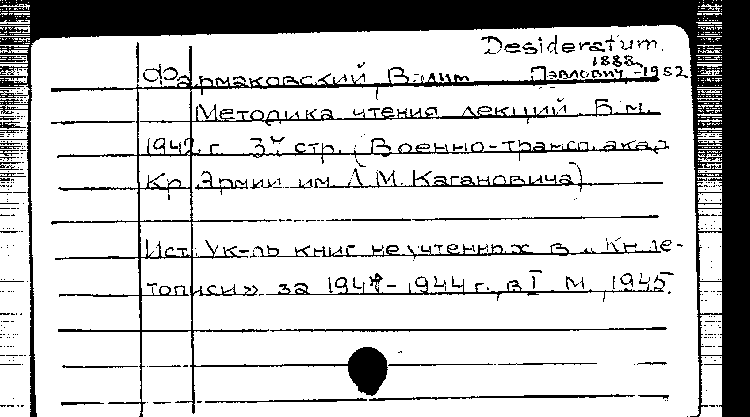 Desideratum.
1888
Фармаковский, Вадим Павлович, -1952
Методика чтения лекций. Б.м.
1942 г. стр. (Военно-трансп. акад
Кр. Армии им. Л.М. Кагановича)
Ист. Ук-ль книг неучтенных в „Кн ле-
тописи» за 1941-1944 г., в I. М., 1945.